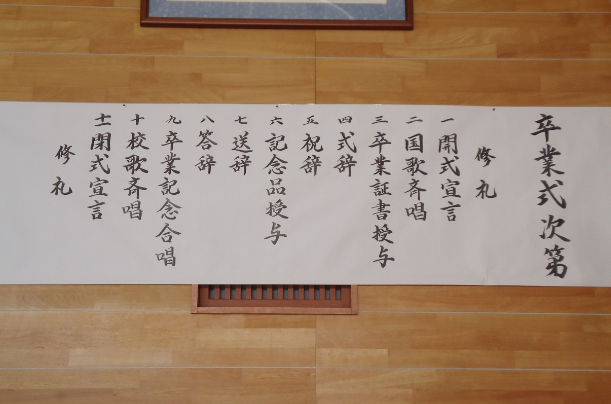 卒業式次第
修礼
一 開式宣言
二 国歌斉唱
三 卒業証書授与
四 式辞
五 祝辞
六 記念品授与
七 送辞
八 答辞
九 卒業記念合唱
十 校歌斉唱
十一 閉式宣言
修礼